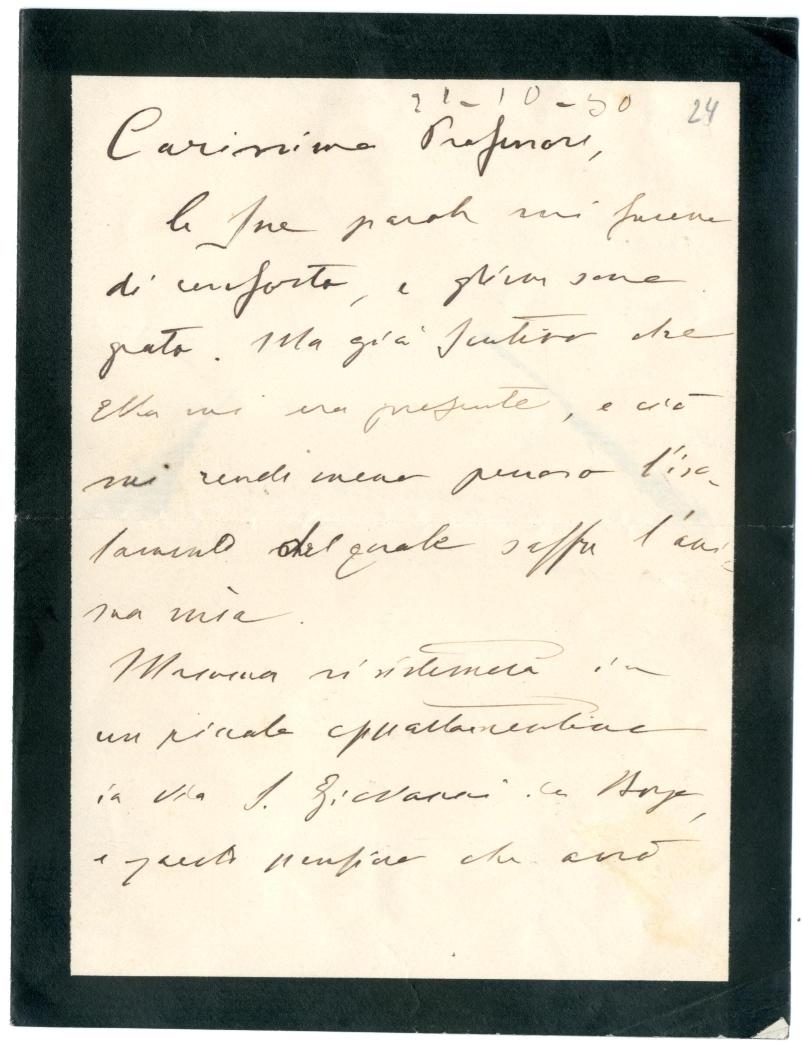 21-10-30 24
Carissimo Professore,
le Sue parole mi furono
di conforto, e gliene sono
grato. Ma già sentivo che
Ella mi era presente, e ciò
mi rende meno penoso l'iso-
lamento del quale soffre l'ani-
ma mia.
Mamma si sistemerà in
un piccolo appartamentino
in via S. Giovanni in
e questo pensiero che avrò